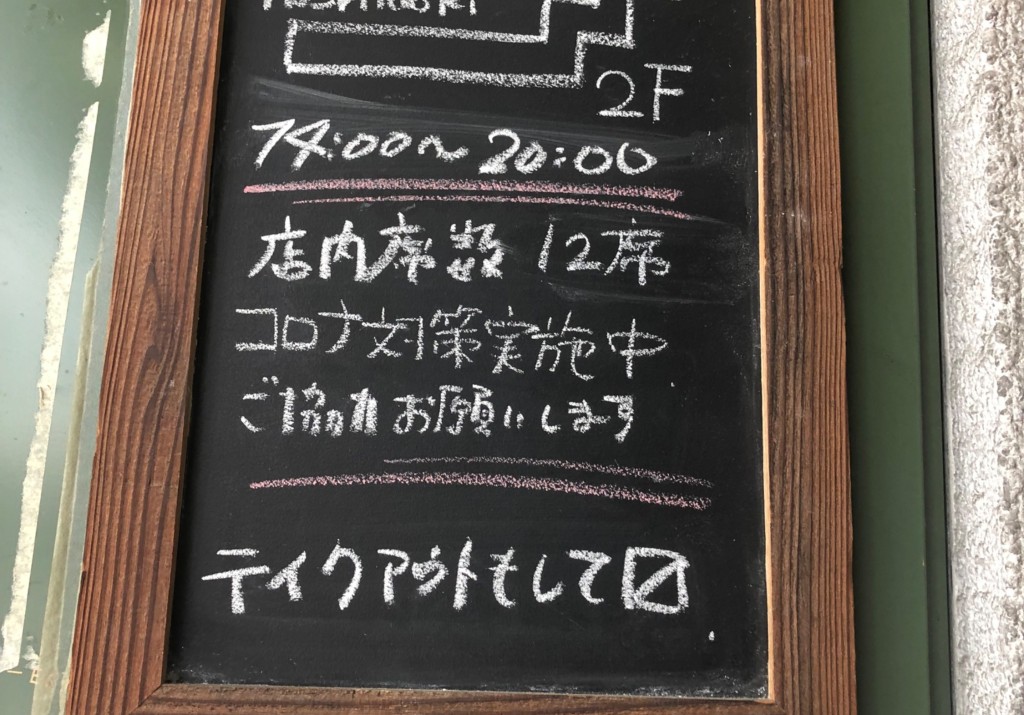 2F
14:00~20:00
店内席数 12席
コロナ対策実施中
ご協力お願いします
テイクアウトもして〼